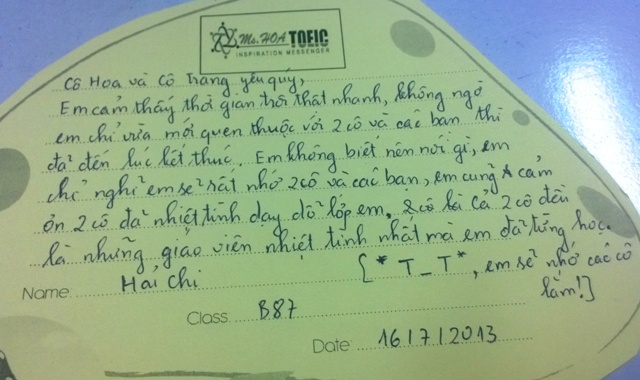 Ms. HOA TOEIC
INSPIRATION MESSENGER
Cô Hoa và Cô Trang yêu quý,
Em cảm thấy thời gian trôi thật nhanh, không ngờ
em chỉ vừa mới quen thuộc với 2 cô và các bạn thì
đã đến lúc kết thúc. Em không biết nên nói gì, em
chỉ nghĩ em sẽ rất nhớ 2 cô và các bạn, em cũng cảm
ơn 2 cô đã nhiệt tình dạy dỗ lớp em. 2 cô là cả 2 cô đều
là những giáo viên nhiệt tình nhất mà em đã từng học.
{*T_T*, em sẽ nhớ các cô
lắm!}
Name: Hải Chi
Class B87
Date: 16/7/2013